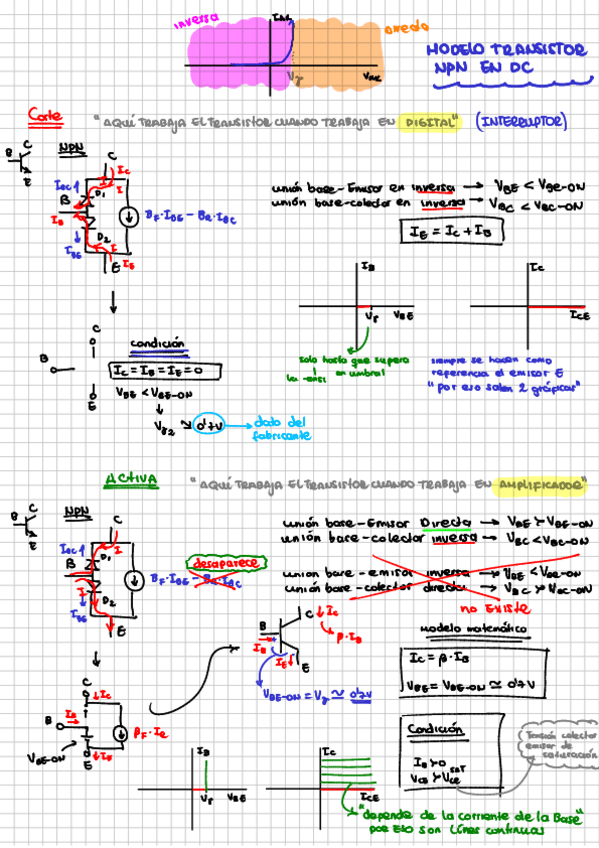 inversa
directa
MODELO TRANSISTOR
NPN EN DC
Corte
"AQUÍ TRABAJA EL TRANSISTOR CUANDO TRABAJA EN DIGITAL" (INTERRUPTOR)
NPN
B C E
C
Ic
I
D1
B
IB
D2
I
E IE
βF·IDE - βR·IBC
unión base-Emisor en inversa → VBE < VBE-ON
unión base-colector en inversa → VBC < VBC-ON
IE = IC + IB
IB
Vγ VBE
IC
ICE
solo hasta que supera
un umbral
siempre se hacen como
referencia el emisor E
"por eso salen 2 gráficas"
C
B
E
condición
IC = IB = IE = 0
VBE < VBE-ON
0'7V → dato del
fabricante
ACTIVA
"AQUÍ TRABAJA EL TRANSISTOR CUANDO TRABAJA EN AMPLIFICADOR"
NPN
B C E
C
I
D1
B
I
D2
E
desaparece
unión base-Emisor Directa → VBE > VBE-ON
unión base-colector inversa → VBC < VBC-ON
unión base-emisor inversa → VBE < VBE-ON
unión base-colector directa → VBC > VBC-ON
no Existe
C ↓ IC
β·IB
B
IB
IE↓ E
VBE-ON = Vγ ≃ 0'7V
Modelo matemático
IC = β·IB
VBE = VBE-ON ≃ 0'7V
C
↓IC
IB
B
VBE-ON
E ↓IE
Condición
IB > 0
VCE > VCE SAT
Tensión colector
emisor de
saturación
IB
Vγ VBE
IC
ICE
"depende de la corriente de la Base"
por ello son líneas continuas